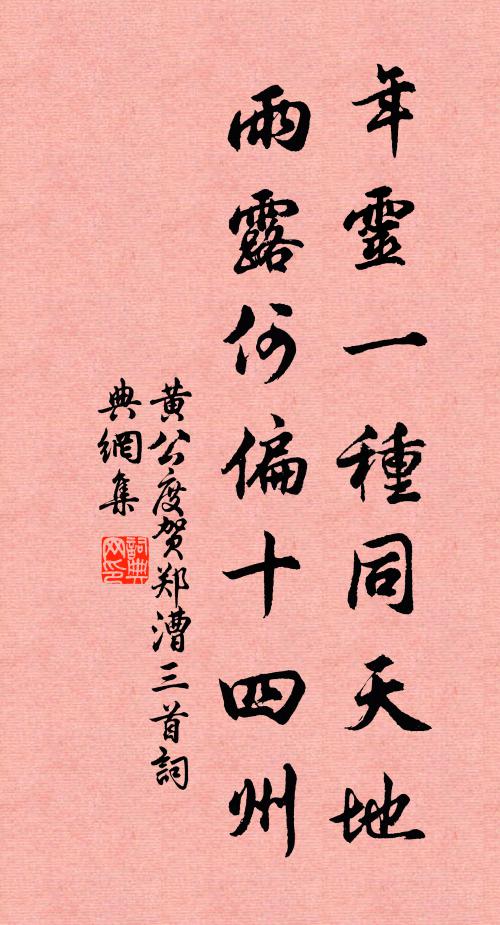 年靈一種同天地
雨露何偏十四州
黄公度贺郑漕三首詞
典網集
詞典
网印